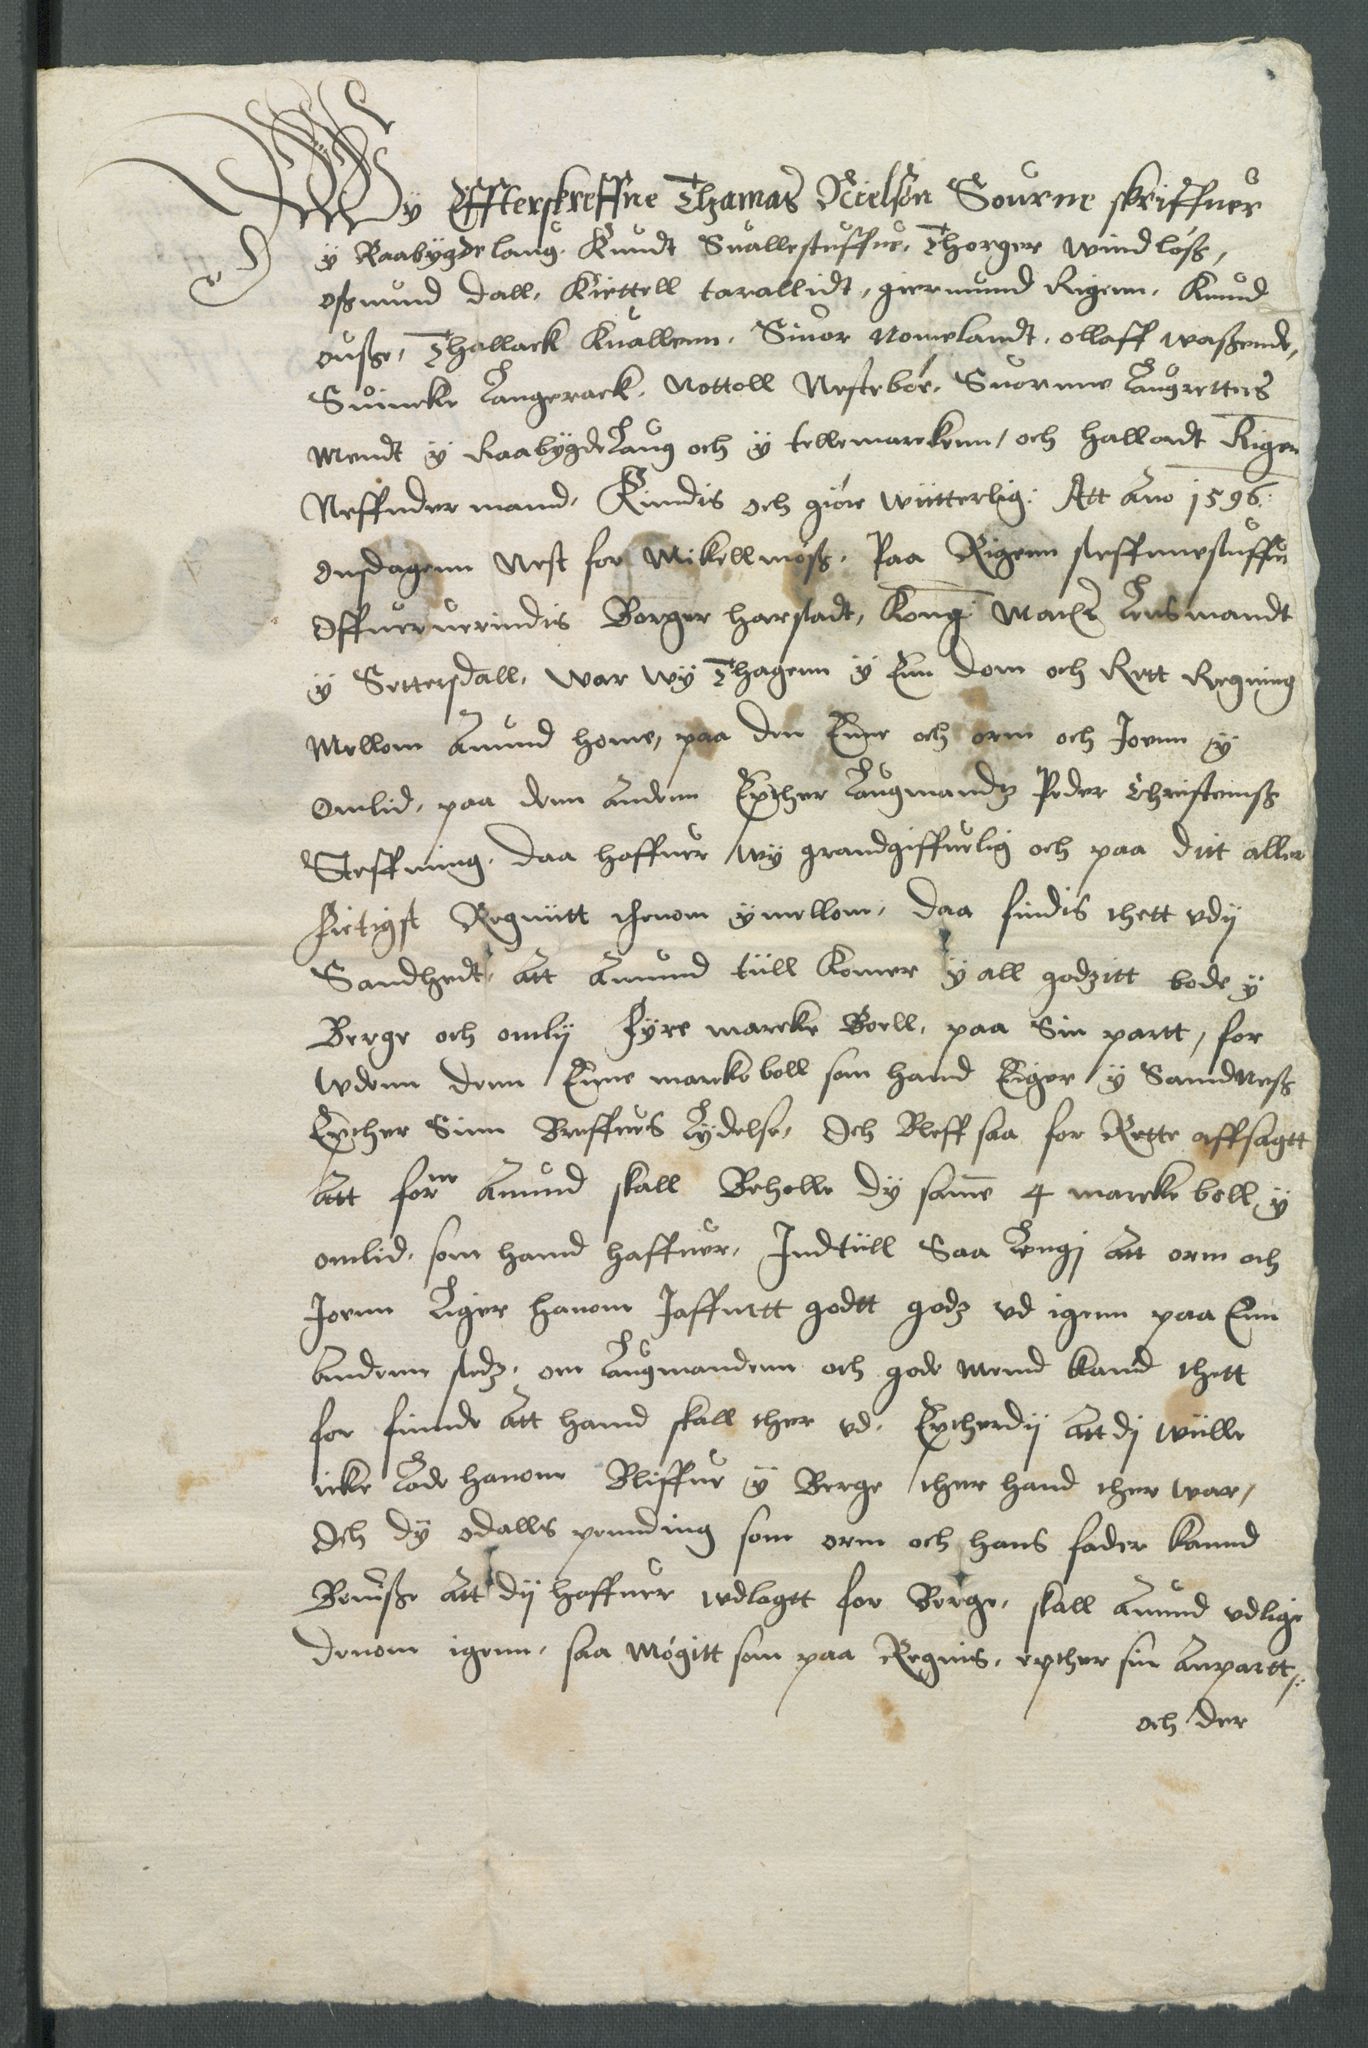 Wy Effterskreffne Thamas Nielsøn Sourne skriffuer
ÿ Raabygdelaug. Knudt Suallestuffue, Thorger windløß,
oßmund dall, Kiettell tarallidt, giermund Rigenn, Knud
ouße, Thallack Kuallenn, Siuor Nomelandt, ollaff waßende,
Suineke Langerack, Nottoll Nestebøe, Suornne Laugretters
Mendt ÿ RaabÿgdeLaug och ÿ tellemarckenn, och Halluordt Rigen
Neffnder mand, Kindis och giøre wiitterlig: Att Ano 1596:
onsdagenn Nest for Mikellmøß, Paa Rigenn steffnnestuffu
Offueruerindis Borger harstadt, Kong: Maÿts Lensmandt
ÿ Settersdall, war wÿ Thagenn ÿ Enn dom och Rett Regning
Mellom Amund home, paa den Enne och orm och Jorun ÿ
Omlid, paa denn Andenn Epther Laugmandz Peder Christennß
Steffning, daa haffuer wÿ grandgiffuelig och paa ditt aller
flitigst Regniitt thenom ÿmellom, daa findis thett vdÿ
Sandhedt, Att Amund tiill komer ÿ all godzitt bode ÿ
Berge och omlÿ fÿre marcke Boell, paa Sin partt, for
wdenn denn Enne marckeboll som hand Eiger ÿ Sandneß
Epther Sinn Breffues Lÿdelse, Och Bleff saa for Rette affsagtt
Att forne Amund skall Beholle dÿ same 4 marcke boll ÿ
omlid, som hand haffuer, Indtiill Saa Lengj Att orm och
Jorun Liger hanom Jaffuett godtt godz vd igenn paa Enn
Andenn stedz, om Laugmandenn och gode Mend kand thett
for finnde Att hand skall ther vd, Eptherdÿ Att dj wiille
icke Lade hanom Bliffue ÿ Berge ther hand ther war,
Och dÿ odalls pending som orm och hans fader kannd
Beuiße Att dÿ haffuer wdlagtt for Berge, skall Amund vdlige
denom igenn, saa Møgitt som paa Regnis, epther sin Anpartt,
och der